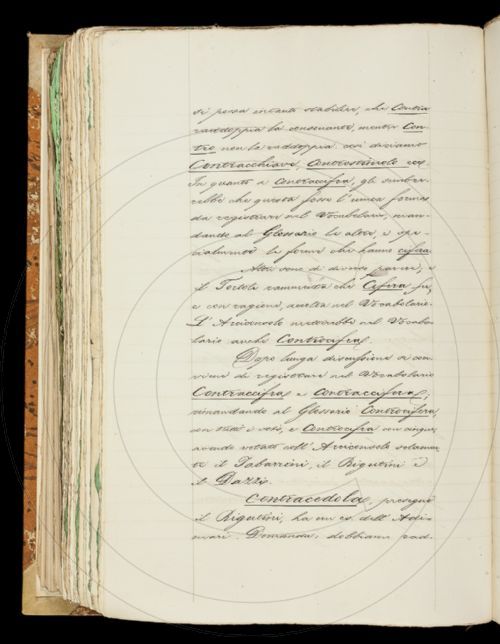 si possa intanto stabilire, che Contra
raddoppia la consonante, mentre Con-
tro non la raddoppia: così diciamo
Contracchiave, Controstimolo ecc.
In quanto a Contraccifra, gli sembre-
rebbe che questa fosse l'unica forma
da registrare nel Vocabolario, man-
dando al Glossario le altre, e spe-
cialmente le forme che hanno cifera.
Altri sono di diverso parere, e
il Tortoli rammenta che Cifera fu,
e con ragione, accolta nel Vocabolario.
L'Arciconsolo metterebbe nel Vocabo-
lario anche Controcifra.
Dopo lunga discussione si con-
viene di registrare nel Vocabolario
Contraccifra e Contraccifera,
rimandando al Glossario Controcifera
con tutti i voti, e Controcifra con cinque
avendo votato coll'Arciconsolo solamen-
te il Tabarrini, il Rigutini e
il Dazzi.
Contracedola, prosegue
il Rigutini, ha un es. dell'Adi-
mari. Domanda: dobbiamo rad-